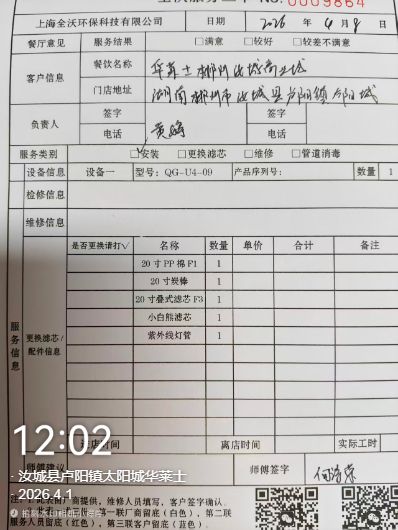 NO. 0009864
上海全沃环保科技有限公司 日期 2026 年 4 月 8 日
餐厅意见 服务结果 □满意 □较好 □较差不满意
客户信息 餐饮名称 华莱士郴州汝城商业城
门店地址 湖南郴州市汝城县卢阳镇
负责人 签字
电话
服务类别 □安装 □更换滤芯 □维修 □管道消毒
设备信息 设备一 型号: QG-U4-09 产品序列号: 数量 1
检修信息
维修信息
是否更换请打√ 名称 数量 单价 合计 备注
20寸PP棉F1 1
20寸炭棒 1
20寸叠式滤芯F3 1
小白熊滤芯 1
紫外线灯管 1
服务信息
更换滤芯/配件信息
进店时间 离店时间 实际工时
12:02
师傅建议 师傅签字
- 汝城县卢阳镇太阳城华莱士
- 2026.4.1
维修人员填写,客户签字确认。
服务人员留底(红色),第三联客户留底(蓝色)。